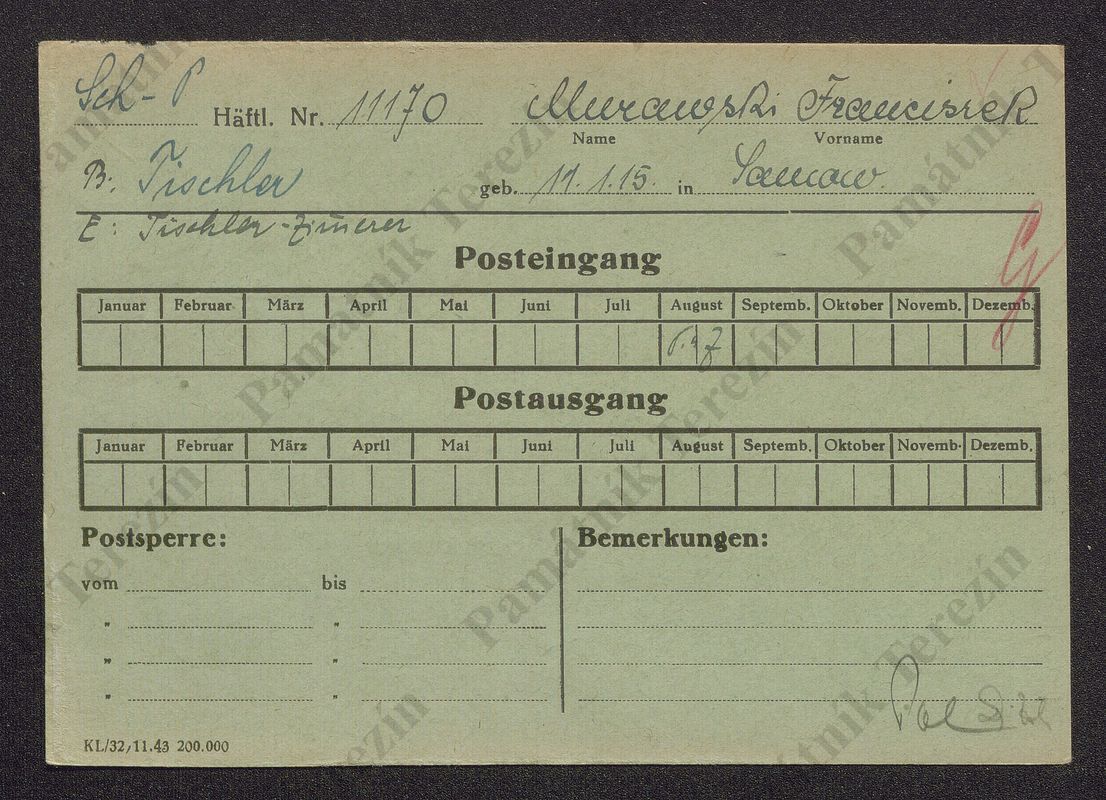 Sch - P Häftl. Nr. 11170 Murawski Franciszek
Name Vorname
B: Tischler geb. 11.1.15. in
E: Tischler-Zimerer
Posteingang
Januar Februar März April Mai Juni Juli August Septemb. Oktober Novemb. Dezemb.
Postausgang
Januar Februar März April Mai Juni Juli August Septemb. Oktober Novemb. Dezemb.
Postsperre: Bemerkungen:
vom bis
" "
" "
" "
Pol
KL/32/11.43 200.000
Památník Terezín